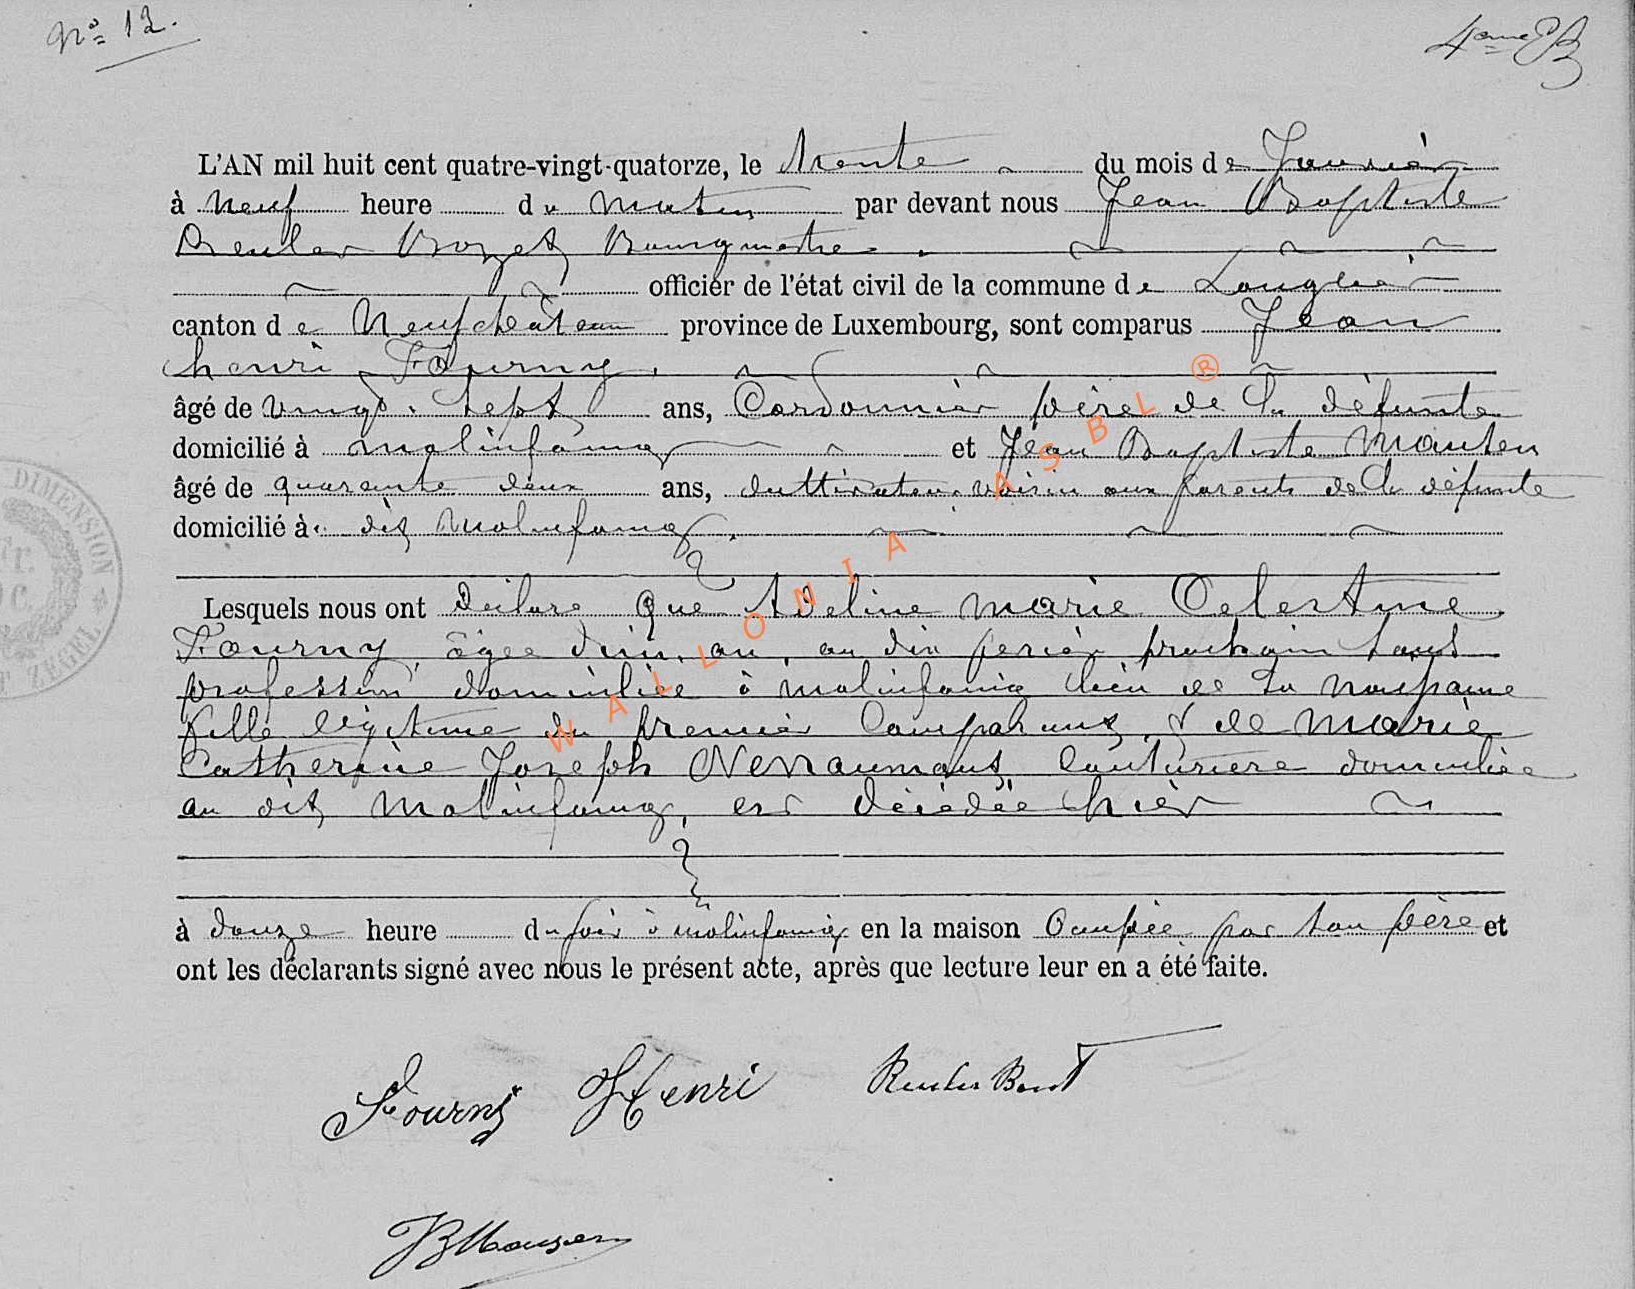 N° 12.
4eme
L'AN mil huit cent quatre-vingt-quatorze, le trente du mois de Janvier
à neuf heure du matin par devant nous Jean Baptiste
Reuler Bozet Bourgmestre
officier de l'état civil de la commune de Longlier
canton de Neufchâteau province de Luxembourg, sont comparus Jean
henri Fourny,
âgé de vingt-sept ans, Cordonnier père de la défunte
domicilié à molinfaing et Jean Baptiste
âgé de quarante deux ans, cultivateur voisin aux parents de la défunte
domicilié à dit Molinfaing.
Lesquels nous ont déclaré que Adeline marie Celestine
Fourny, âgée d'un an, au dix prochain sans
profession domiciliée à molinfaing lieu de sa naissance
fille légitime du premier comparant, & de marie
Catherine Joseph couturière domiciliée
au dit Molinfaing, est décédée hièr
à douze heure du soir à molinfaing en la maison Occupée par son père et
ont les déclarants signé avec nous le présent acte, après que lecture leur en a été faite.
Fourny Henri Reuler
JB
DIMENSION
ZEGEL
WALLONIA ASBL ®